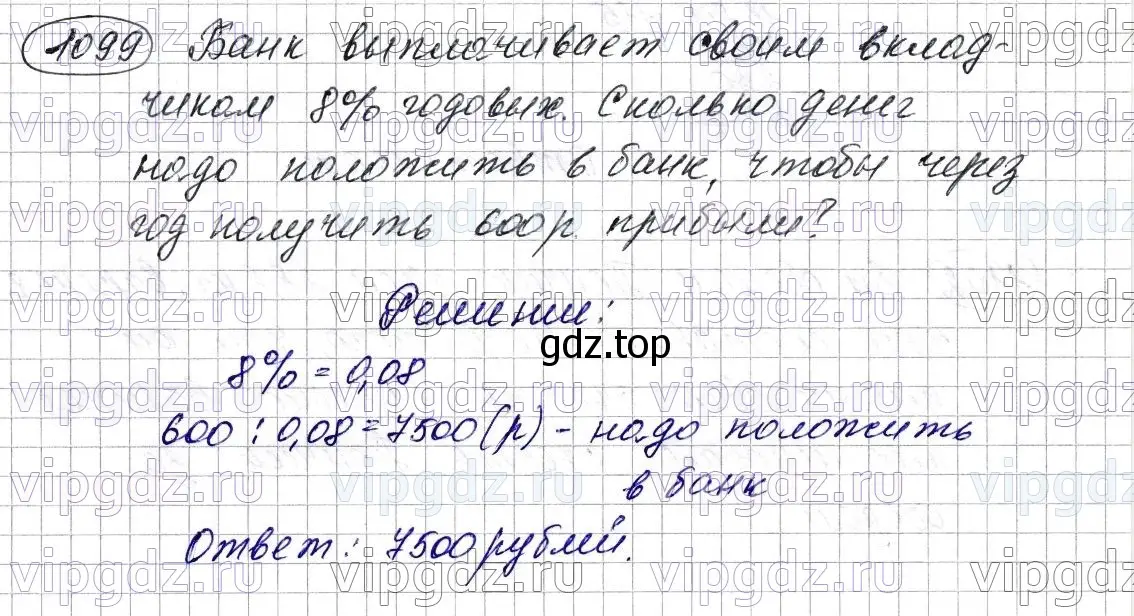 1099 Банк выплачивает своим вклад-
чикам 8% годовых. Сколько денег
надо положить в банк, чтобы через
год получить 600 р. прибыли?
Решение:
gdz.top
8% = 0,08
600 : 0,08 = 7500 (р) - надо положить
в банк
Ответ: 7500 рублей.
vipgdz.ru